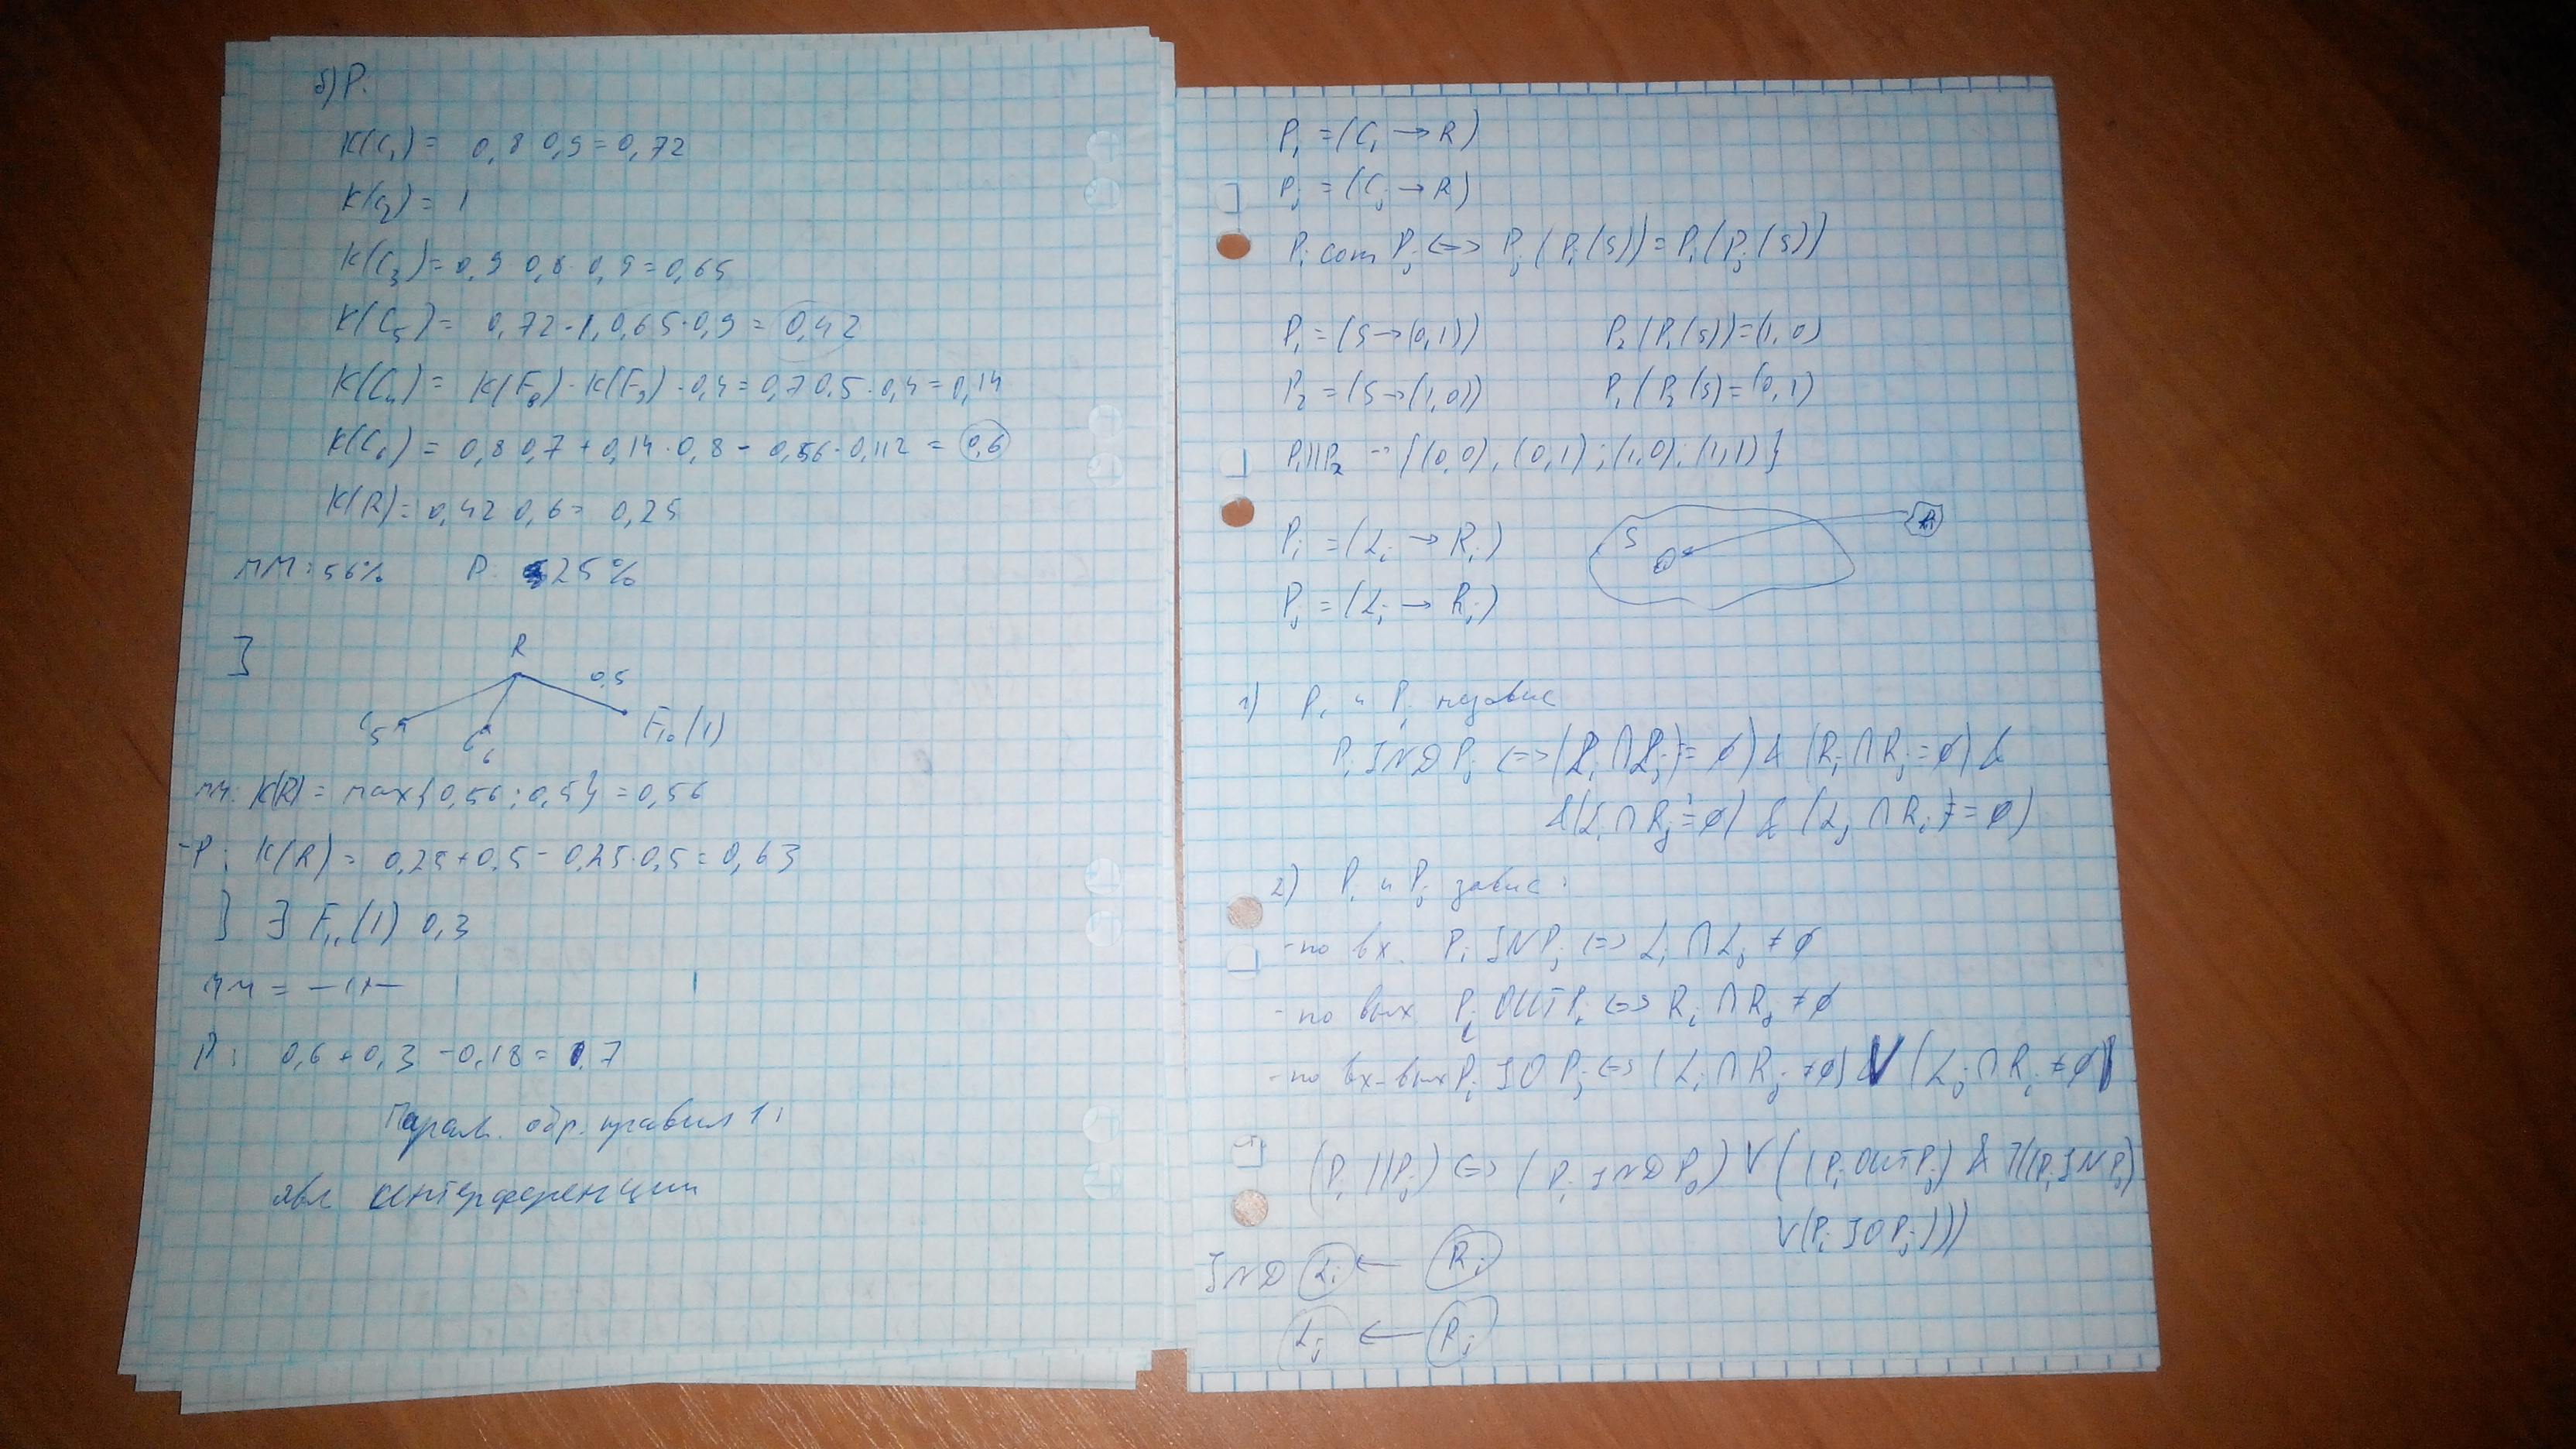 б) P.
K(C₁) = 0,8 0,9 = 0,72
K(C₂) = 1
K(C₃) = 0,9 0,8 · 0,9 = 0,65
K(C₅) = 0,72 · 1, 0,65 · 0,9 = 0,42
K(C₄) = K(F₈) · K(F₉) · 0,4 = 0,7 0,5 · 0,4 = 0,14
K(C₆) = 0,8 0,7 + 0,14 · 0,8 - 0,56 · 0,112 = 0,6
K(R) = 0,42 0,6 = 0,25
ММ: 56% P. 25%
]
R
0,5
C₅
C₆
F₁₀(1)
ММ: K(R) = max{0,56; 0,5} = 0,56
-P: K(R) = 0,25 + 0,5 - 0,25 · 0,5 = 0,63
] ∃ F₁₁(1) 0,3
ММ = —〃—
P: 0,6 + 0,3 - 0,18 = 0,7
Парал. обр. правил 1:
явл интерференции
Pᵢ = (Cᵢ → R)
Pⱼ = (Cⱼ → R)
Pᵢ com Pⱼ <=> Pⱼ(Pᵢ(S)) = Pᵢ(Pⱼ(S))
P₁ = (S → (0,1)) P₂(P₁(S)) = (1,0)
P₂ = (S → (1,0)) P₁(P₂(S) = (0,1)
P₁||P₂ → {(0,0), (0,1); (1,0); (1,1)}
Pᵢ = (Lᵢ → Rᵢ)
S
Pⱼ = (Lⱼ → Rⱼ)
1) Pᵢ и Pⱼ независ
Pᵢ IND Pⱼ <=> (Lᵢ ∩ Lⱼ) = ∅) & (Rᵢ ∩ Rⱼ = ∅) &
&(Lᵢ ∩ Rⱼ = ∅) & (Lⱼ ∩ Rᵢ = ∅)
2) Pᵢ и Pⱼ завис:
-по вх. Pᵢ IN Pⱼ <=> Lᵢ ∩ Lⱼ ≠ ∅
-по вых. Pᵢ OUT Pⱼ <=> Rᵢ ∩ Rⱼ ≠ ∅
-по вх-вых Pᵢ IO Pⱼ <=> (Lᵢ ∩ Rⱼ ≠ ∅) V (Lⱼ ∩ Rᵢ ≠ ∅)
(Pᵢ || Pⱼ) <=> (Pᵢ IND Pⱼ) V ((Pᵢ OUT Pⱼ) & ⌉((Pᵢ IN Pⱼ)
V (Pᵢ IO Pⱼ)))
IND Lᵢ ← Rᵢ
Lⱼ ← Rⱼ